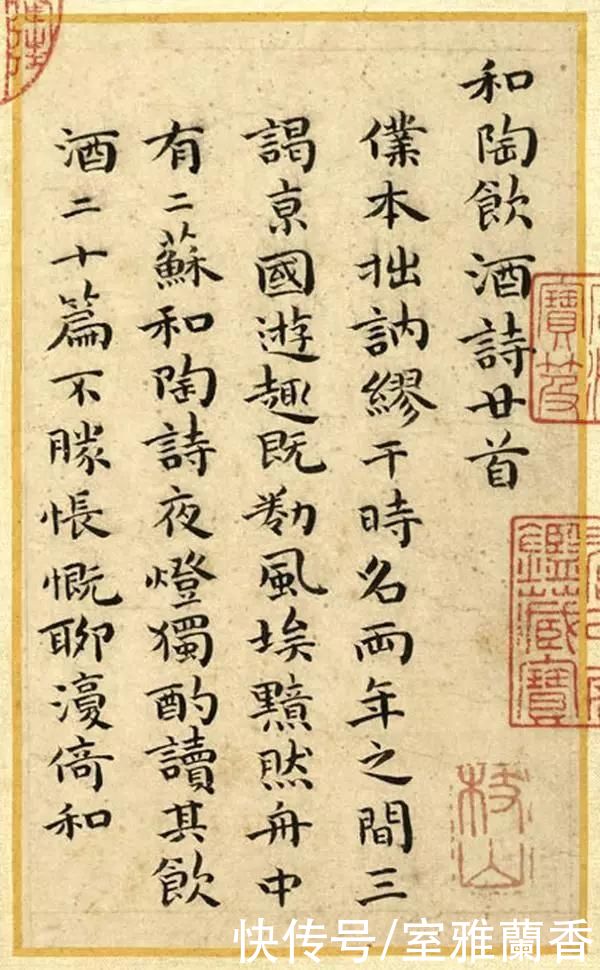 和陶飲酒詩廿首
僕本拙訥繆干時名兩年之間三
謁京國遊趣既勌風埃黯然舟中
有二蘇和陶詩夜燈獨酌讀其飲
酒二十篇不勝悵慨聊漫倚和
寶笈
鑑藏寶
枝山
快传号/室雅蘭香